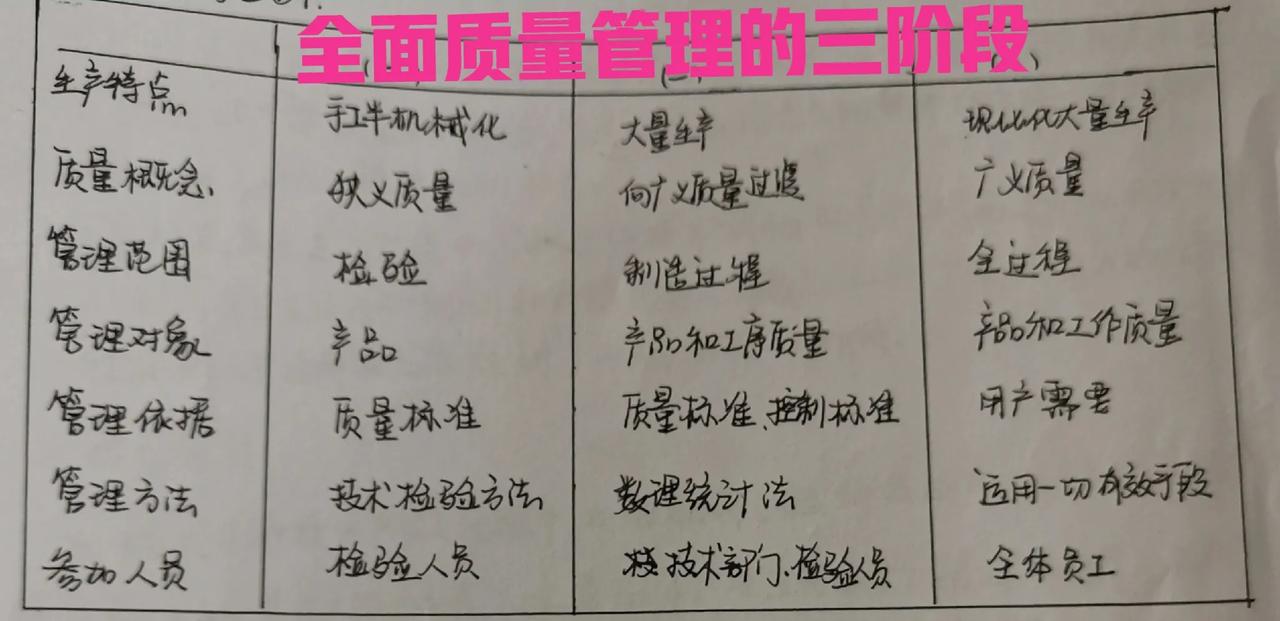 全面质量管理的三阶段
生产特点 手工半机械化 大量生产 现代化大量生产
质量概念 狭义质量 向广义质量过渡 广义质量
管理范围 检验 制造过程 全过程
管理对象 产品 产品和工序质量 产品和工作质量
管理依据 质量标准 质量标准、控制标准 用户需要
管理方法 技术检验方法 数理统计法 运用一切有效手段
参加人员 检验人员 技术部门、检验人员 全体员工